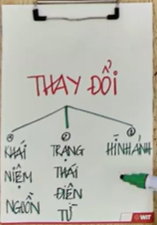 THAY ĐỔI
KHÁI
NIỆM
NGUỒN
TRẠNG
THÁI
ĐIỆN
TỬ
HÌNH ẢNH
WIT